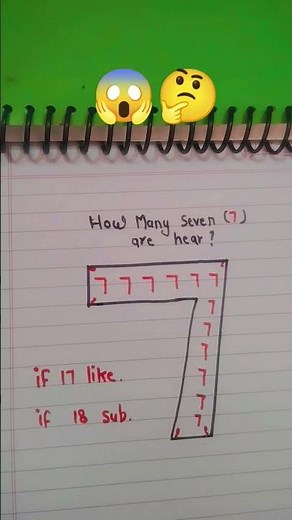 How Many Seven (7)
are hear?
7 7 7 7 7 7
7
7
7
7
7
7
if 17 like.
if 18 sub.